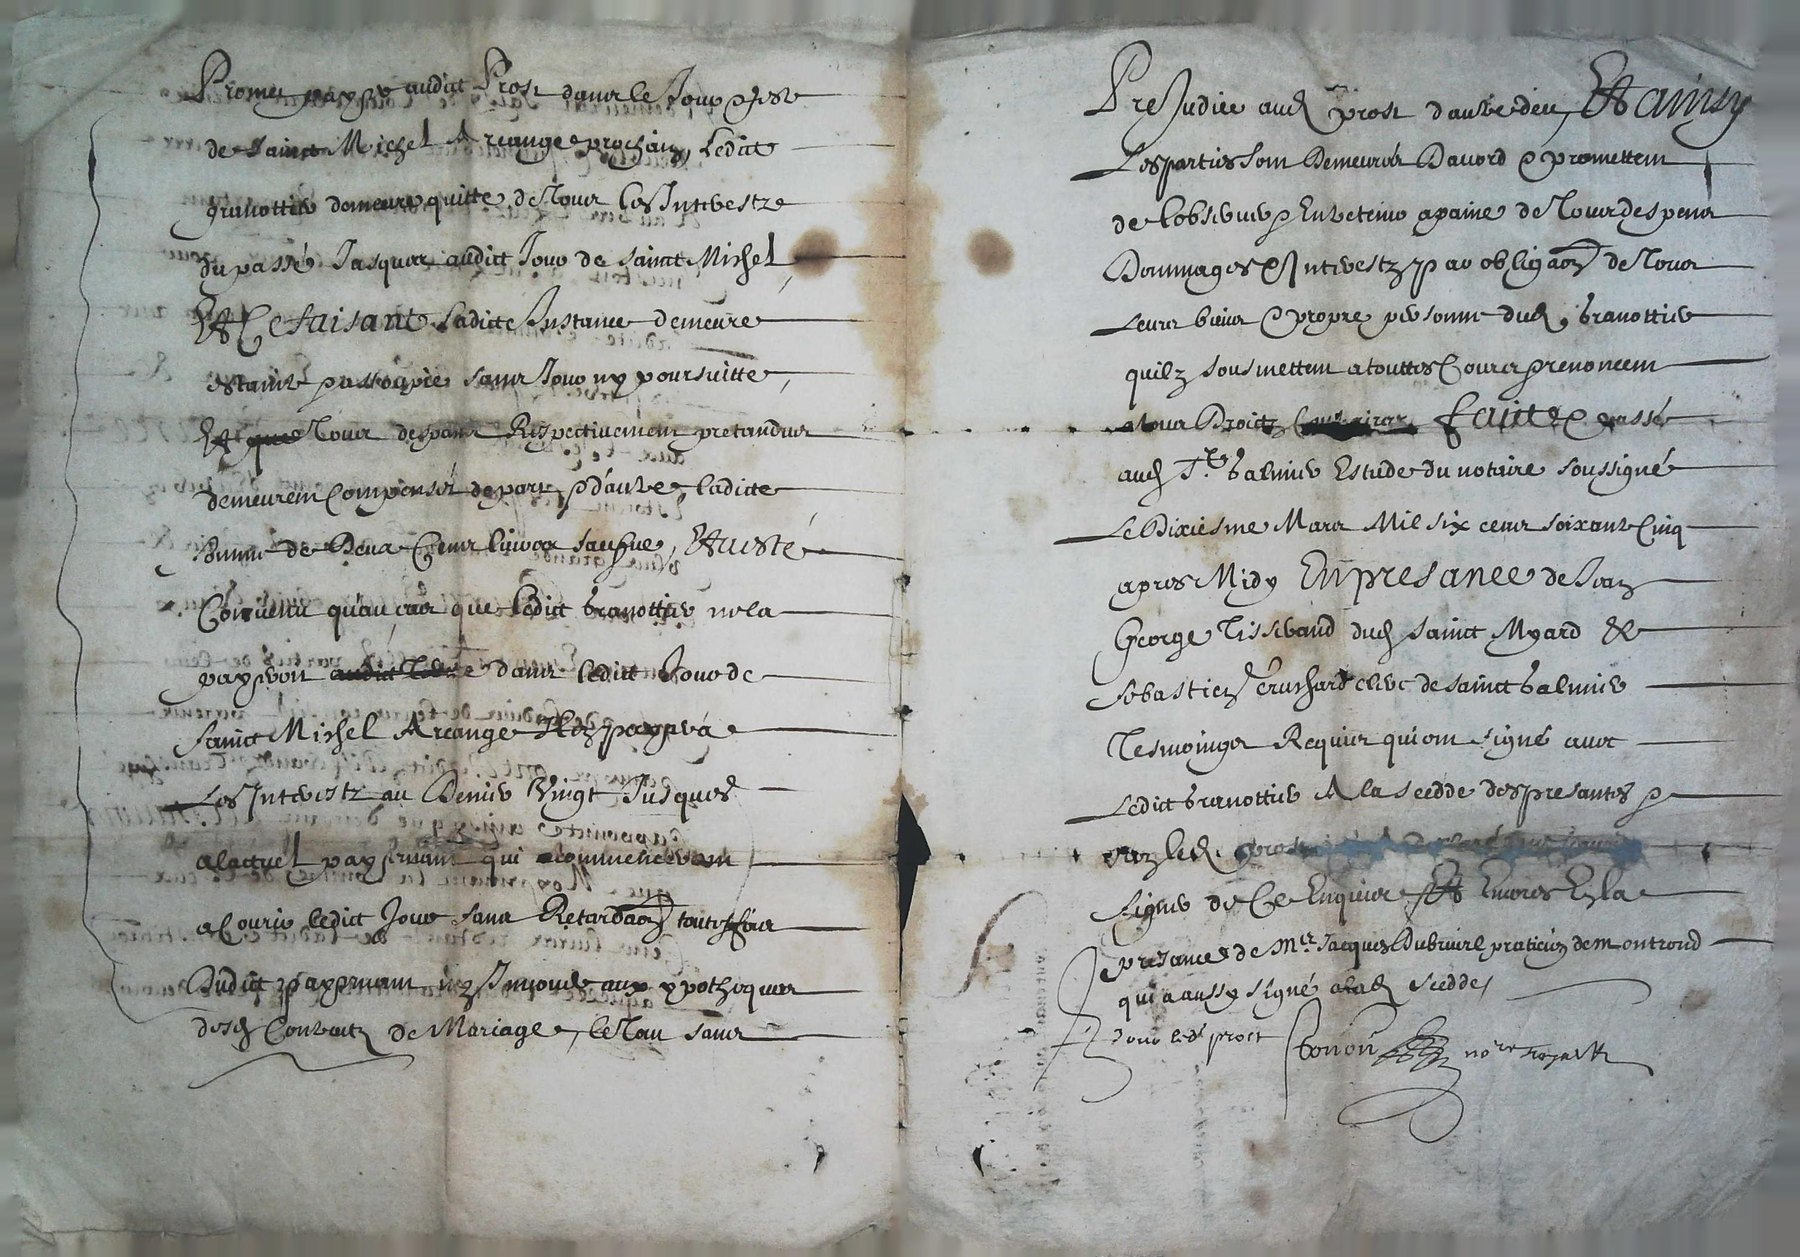 Promet payer audict Prost dans le Jour & feste
de Sainct Michel Arcange prochain, Ledict
granottier demeure quitte de Tous les Interestz
du passé Jusques audict Jour de Sainct Michel
Et Ce faisant Ladicte Instance demeure
estainte & assopie sans Jour ny poursuitte,
Tous despans Respectivement pretandus
demeurent Compensés de part & d'autre, ladicte
somme de Deux Cens livres saufve, Et a esté
Convenu qu'au cas que ledict granottier ne la
payeroit dans ledict Jour de
Sainct Michel Arcange Il en payera
Les Interestz au Denier Vingt Jusques
a lactuel payemant qui commenceront
a Courir ledict Jour sans Retardaon toutesfois
dudict payemant ny Innover aux ypotheques
desd Contractz de Mariage, le Tout sans
Prejudice aud prost dautre deu, Et ainsy
Les parties sont Demeurées Dacord & promettent
de lobserver & Entretenir a paine de Tous despens
Dommages & Interestz, par obligaon de Tous
Leurs biens & propre personne dud granottier
quilz sousmettent a touttes Cours & renoncent
a tous Droictz Contraires, faict & passé
aud St. galmier Estude du notaire soussigné
Le Dixiesme Mars Mil six cens soixante Cinq
apres Midy En presance de Jean
George Tisserand dud Sainct Myard &
Sebastien clerc de Sainct galmier
Tesmoings Requis qui ont signé avec
Ledict granottier A la scedde des presantes &
non led
signer de Ce Enquis Et Encores En la
presance de Mer Jacques Dubruirl praticien de Montrond
qui a aussy signé a lad scedde,
Pour led prost not re royal